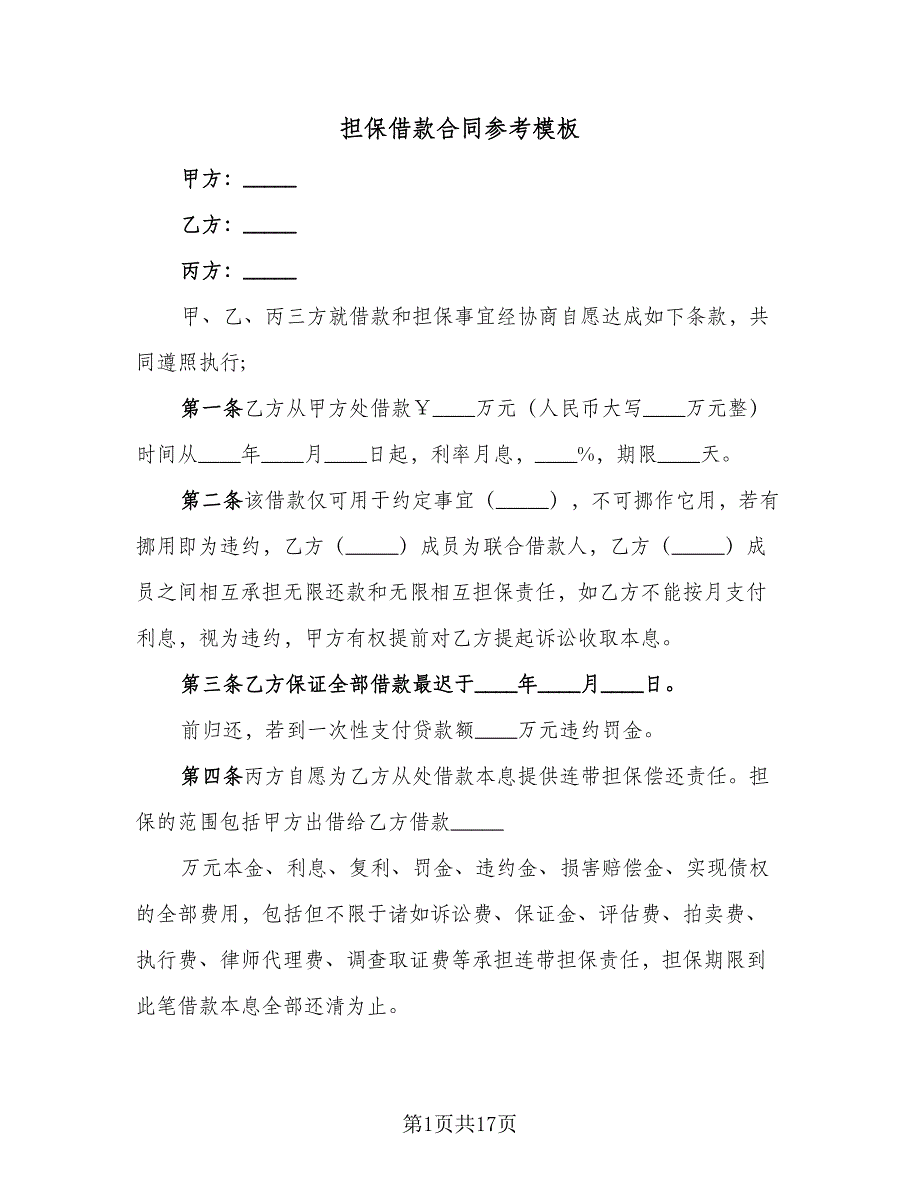 担保借款合同参考模板
甲方：_____
乙方：_____
丙方：_____
甲、乙、丙三方就借款和担保事宜经协商自愿达成如下条款，共
同遵照执行;
第一条乙方从甲方处借款￥____万元（人民币大写____万元整）
时间从____年____月____日起，利率月息，____%，期限____天。
第二条该借款仅可用于约定事宜（_____），不可挪作它用，若有
挪用即为违约，乙方（_____）成员为联合借款人，乙方（_____）成
员之间相互承担无限还款和无限相互担保责任，如乙方不能按月支付
利息，视为违约，甲方有权提前对乙方提起诉讼收取本息。
第三条乙方保证全部借款最迟于____年____月____日。
前归还，若到一次性支付贷款额____万元违约罚金。
第四条丙方自愿为乙方从处借款本息提供连带担保偿还责任。担
保的范围包括甲方出借给乙方借款_____
万元本金、利息、复利、罚金、违约金、损害赔偿金、实现债权
的全部费用，包括但不限于诸如诉讼费、保证金、评估费、拍卖费、
执行费、律师代理费、调查取证费等承担连带担保责任，担保期限到
此笔借款本息全部还清为止。
第1页共17页